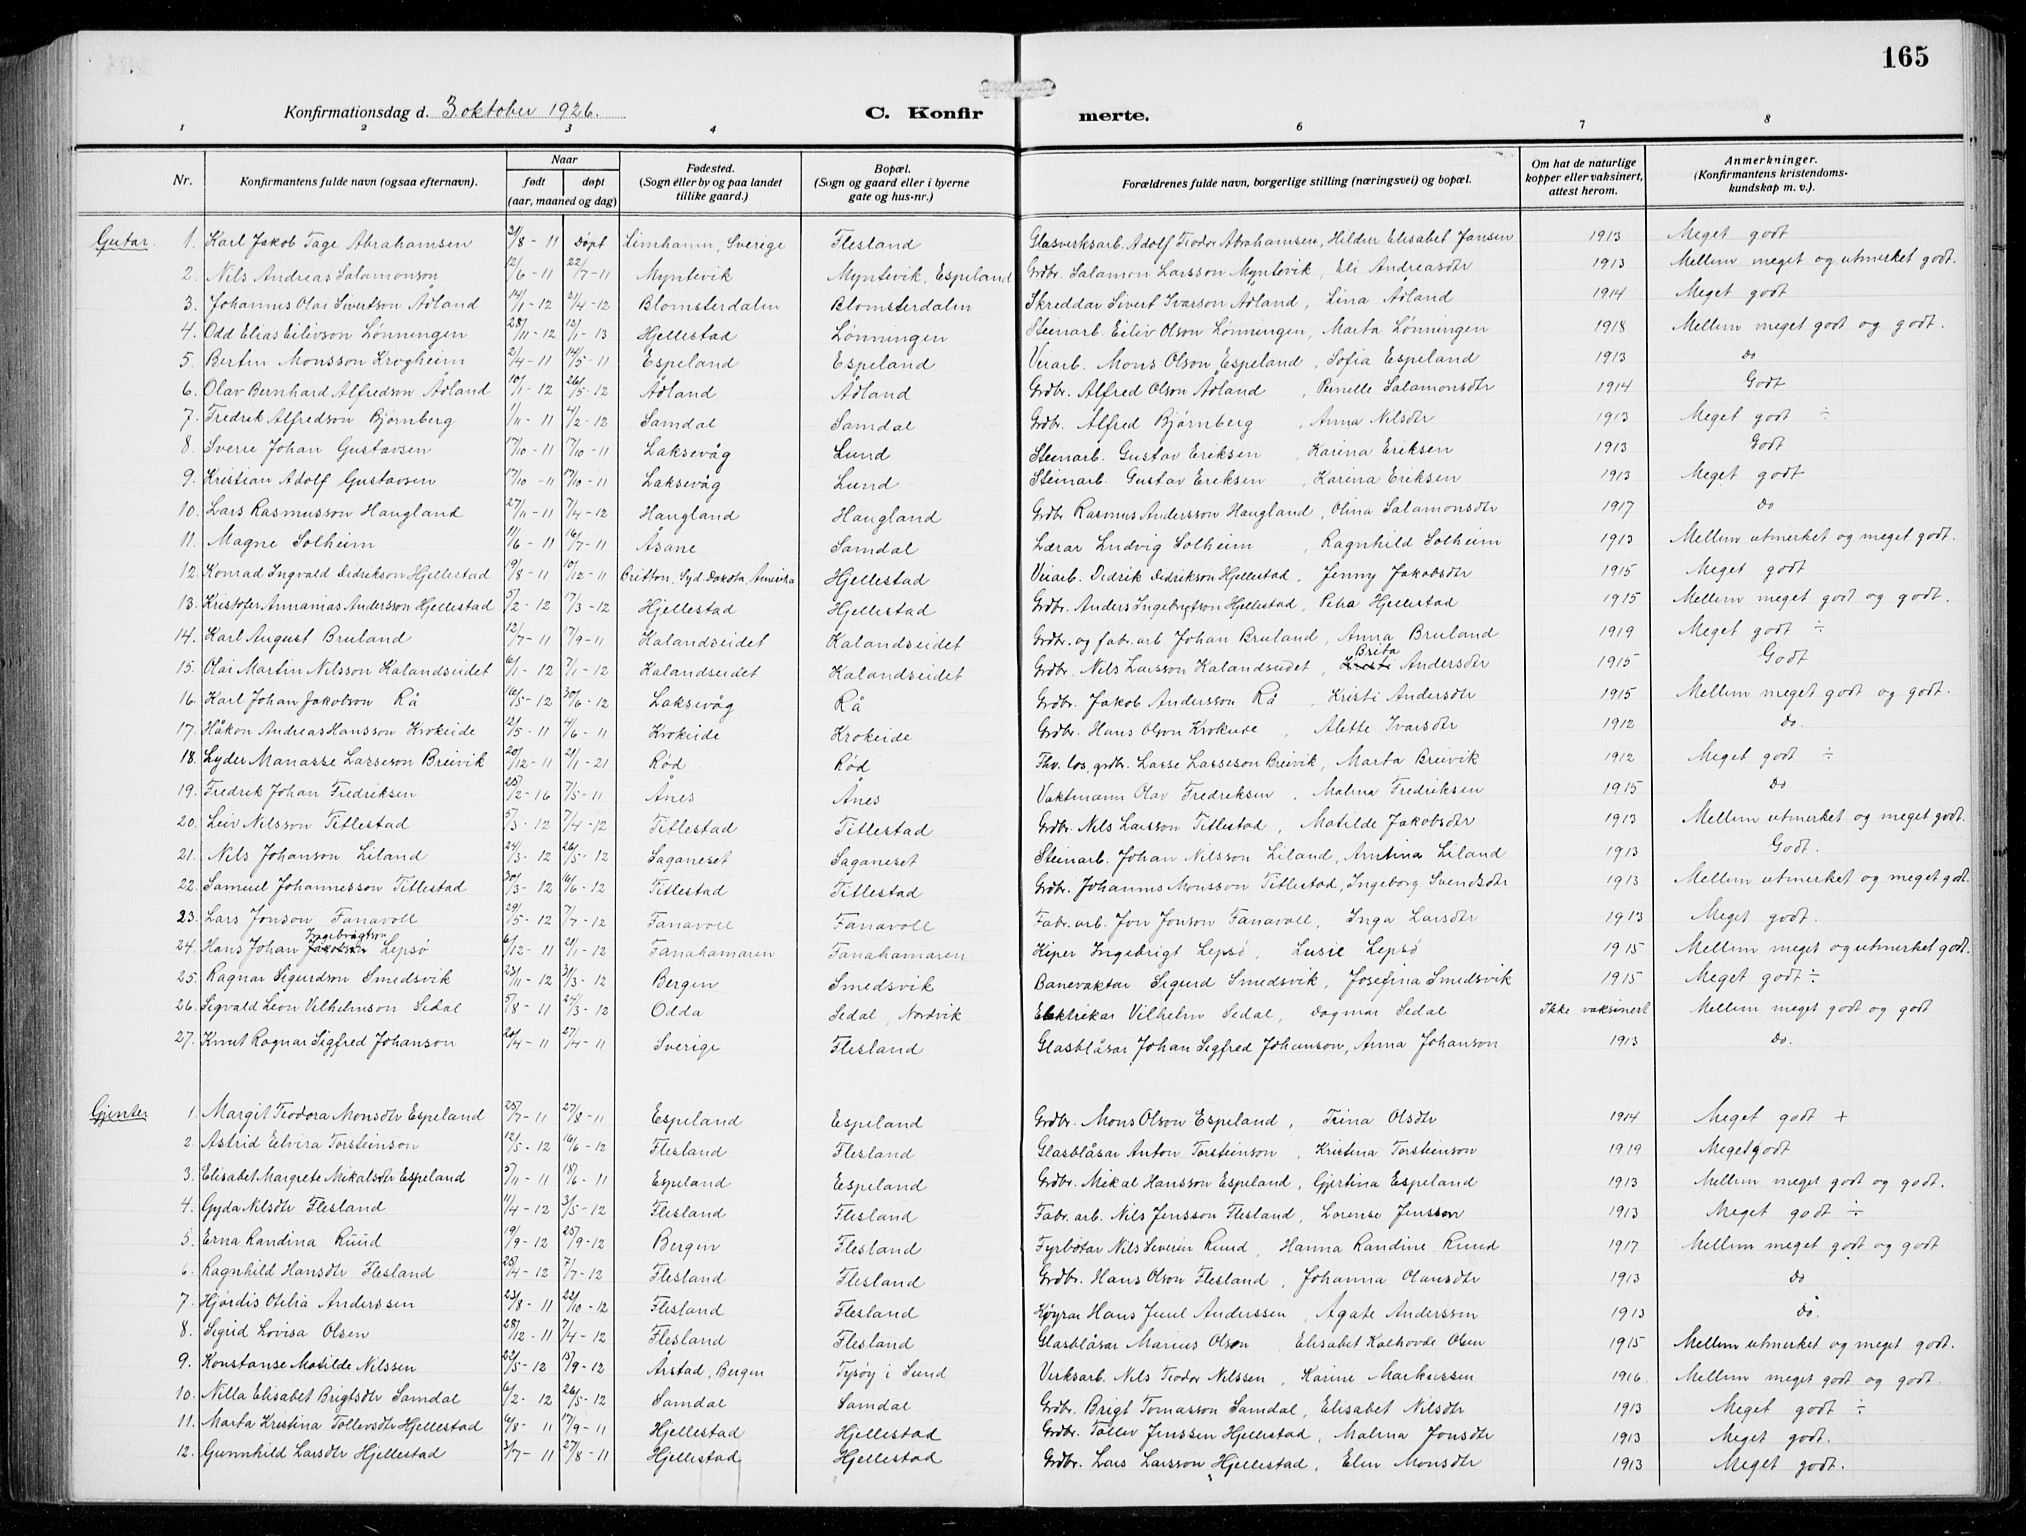 165
Konfirmationsdag d. 3 oktober 1926. C. Konfirmerte.
1 2 3 4 5 6 7 8
Nr. Konfirmantens fulde navn (ogsaa efternavn). Naar født døpt (aar, maaned og dag) Fødested. (Sogn eller by og paa landet tillike gaard.) Bopæl. (Sogn og gaard eller i byerne gate og hus-nr.) Forældrenes fulde navn, borgerlige stilling (næringsvei) og bopæl. Om hat de naturlige kopper eller vaksinert, attest herom. Anmerkninger. (Konfirmantens kristendomskundskap m. v.)
Gutar. 1. Karl Jakob Tage Abrahamsen 21/8 - 11 Døpt Limhamn, Sverige Flesland Glasverksarb. Adolf Teodor Abrahamsen, Hildur Elisabet Jansen 1913 Meget godt
2. Nils Andreas Salamonson 12/6 - 11 22/7 - 11 Myntevik Myntevik, Espeland Grdbr. Salamon Larsson Myntevik, Eli Andreasdtr 1913 Mellem meget og utmerket godt.
3. Johannes Olai Sivertson Ådland 14/1 - 12 21/4 - 12 Blomsterdalen Blomsterdalen Skreddar Sivert Ivarson Ådland, Lina Ådland 1914 Meget godt
4. Odd Elias Eilivson Lønningen 28/11 - 12 12/1 - 13 Hjellestad Lønningen Steinarb. Eiliv Olson Lønningen, Marta Lønningen 1918 Mellem meget godt og godt.
5. Bertin Monsson Krogheim 21/4 - 11 14/5 - 11 Espeland Espeland Veiarb. Mons Olson Espeland, Sofia Espeland 1913 do
6. Olav Bernhard Alfredson Ådland 10/1 - 12 26/5 - 12 Ådland Ådland Grdbr. Alfred Olson Ådland, Pernille Salamonsdtr 1914 Godt
7. Fredrik Alfredson Bjørnberg 1/11 - 11 4/2 - 12 Samdal Samdal Grdbr. Alfred Bjørnberg, Anna Nilsdtr 1913 Meget godt ÷
8. Sverre Johan Gustavsen 17/10 - 11 17/10 - 11 Laksevåg Lund Steinarb. Gustav Eriksen, Karina Eriksen 1913 Godt
9. Kristian Adolf Gustavsen 17/10 - 11 17/10 - 11 Laksevåg Lund Steinarb. Gustav Eriksen, Karina Eriksen 1913 Meget godt
10. Lars Rasmusson Haugland 27/11 - 11 7/4 - 12 Haugland Haugland Grdbr. Rasmus Andersson Haugland, Olina Salamonsdtr 1917 do
11. Magne Solheim 11/6 - 11 16/7 - 11 Åsane Samdal Lærar Ludvig Solheim, Ragnhild Solheim 1913 Mellem utmerket og meget godt.
12. Konrad Ingvald Didrikson Hjellestad 19/8 - 11 10/12 - 11 Britton, Syd Dakota, Amerika Hjellestad Veiarb. Didrik Didrikson Hjellestad, Jenny Jakobsdtr 1915 Meget godt
13. Kristofer Annanias Andersson Hjellestad 5/2 - 12 17/3 - 12 Hjellestad Hjellestad Grdbr. Anders Ingebrigtson Hjellestad, Petra Hjellestad 1915 Mellem meget godt og godt.
14. Karl August Bruland 12/7 - 11 17/9 - 11 Kalandseidet Kalandseidet Grdbr. og fabr. arb Johan Bruland, Anna Bruland 1919 Meget godt ÷
15. Olai Martin Nilsson Kalandseidet 6/1 - 12 7/1 - 12 Kalandseidet Kalandseidet Grdbr. Nils Larsson Kalandseidet, Kristi Brita Andersdtr 1915 Godt
16. Karl Johan Jakobson Rå 16/5 - 12 30/6 - 12 Laksevåg Rå Grdbr. Jakob Andersson Rå, Kristi Andersdtr 1915 Mellem meget godt og godt.
17. Håkon Andreas Hansson Krokeide 12/5 - 11 4/6 - 11 Krokeide Krokeide Grdbr. Hans Olson Krokeide, Alette Ivarsdtr 1912 do.
18. Lyder Manasse Lasseson Breivik 20/12 - 11 21/1 - 21 Rød Rød Fhv. los, grdbr. Lasse Lasseson Breivik, Marta Breivik 1912 Meget godt ÷
19. Fredrik Johan Fredriksen 25/2 - 16 7/5 - 11 Ånes Ånes Vaktmann Olav Fredriksen, Malina Fredriksen 1915 do
20. Leiv Nilsson Titlestad 5/3 - 12 7/4 - 12 Titlestad Titlestad Grdbr. Nils Larsson Titlestad, Matilde Jakobsdtr 1913 Mellem utmerket og meget godt.
21. Nils Johanson Liland 24/3 - 12 26/5 - 12 Saganeset Saganeset Steinarb. Johan Nilsson Liland, Arntina Liland 1913 Godt.
22. Samuel Johannesson Titlestad 30/3 - 12 16/6 - 12 Titlestad Titlestad Grdbr. Johannes Monsson Titlestad, Ingeborg Svendsdtr 1913 Mellem utmerket og meget godt.
23. Lars Jonson Fanavoll 29/5 - 12 7/7 - 12 Fanavoll Fanavoll Fabr. arb. Jon Jonson Fanavoll, Inga Larsdtr 1913 Meget godt.
24. Hans Johan Jakobsen Ingebrigtson Lepsø 6/12 - 11 21/1 - 12 Fanahamaren Fanahamaren Kiper Ingebrigt Lepsø, Lusie Lepsø 1915 Mellem meget og utmerket godt.
25. Ragnar Sigurdson Smedsvik 23/11 - 12 31/3 - 12 Bergen Smedsvik Banevaktar Sigurd Smedsvik, Josefina Smedsvik 1915 Meget godt ÷
26. Sigvald Leon Vilhelmson Sedal 5/8 - 11 24/3 - 12 Odda Sedal, Nordvik Elektrikar Vilhelm Sedal, Dagmar Sedal Ikke vaksinert Mellem meget godt og godt
27. Knut Ragnar Sigfred Johanson 20/4 - 11 27/4 - 11 Sverige Flesland Glasblåsar Johan Sigfred Johanson, Anna Johanson 1913 do.
Gjenter 1. Margit Teodora Monsdtr Espeland 25/7 - 11 27/8 - 11 Espeland Espeland Grdbr. Mons Olson Espeland, Trina Olsdtr 1914 Meget godt +
2. Astrid Elvira Torsteinson 12/5 - 12 16/6 - 12 Flesland Flesland Glasblåsar Anton Torsteinson, Kristina Torsteinson 1919 Meget godt
3. Elisabet Margrete Mikalsdtr Espeland 5/11 - 11 18/6 - 11 Espeland Espeland Grdbr. Mikal Hansson Espeland, Gjertina Espeland 1913 Mellem meget godt og godt.
4. Gyda Nilsdtr Flesland 11/4 - 12 3/5 - 12 Flesland Flesland Fabr. arb. Nils Jensson Flesland, Lorense Jensson 1913 Meget godt ÷
5. Erna Randina Ruud 19/9 - 12 25/9 - 12 Bergen Flesland Fyrbøtar Nils Severin Ruud, Hanna Randine Ruud 1917 Mellem meget godt og godt
6. Ragnhild Hansdtr Flesland 25/4 - 12 7/7 - 12 Flesland Flesland Grdbr. Hans Olson Flesland, Johanna Olansdtr 1913 do
7. Hjørdis Otelia Anderssen 23/8 - 11 22/10 - 12 Flesland Flesland Køyrar Hans Juul Anderssen, Agate Anderssen 1913 do.
8. Sigrid Lovisa Olsen 28/12 - 11 7/4 - 12 Flesland Flesland Glasblåsar Marius Olson Elisabet Kalhovde Olsen 1915 Mellem utmerket og meget godt.
9. Konstanse Matilde Nilssen 22/5 - 12 15/9 - 12 Årstad, Bergen Tysøy i Sund Verksarb. Nils Teodor Nilssen, Karine Markussen 1916 Mellem meget godt og godt.
10. Nilla Elisabet Brigtsdtr Samdal 6/2 - 12 26/5 - 12 Samdal Samdal Grdbr. Brigt Tomasson Samdal, Elisabet Nilsdtr 1913 Meget godt ÷
11. Marta Kristina Tollevsdtr Hjellestad 6/8 - 11 17/9 - 11 Hjellestad Hjellestad Grdbr. Tollev Jenssen Hjellestad, Malena Jonsdtr 1913 Meget godt.
12. Gunnhild Larsdtr Hjellestad 3/7 - 11 27/8 - 11 Hjellestad Hjellestad Grdbr. Lars Larsson Hjellestad, Elen Monsdtr 1913 Meget godt.